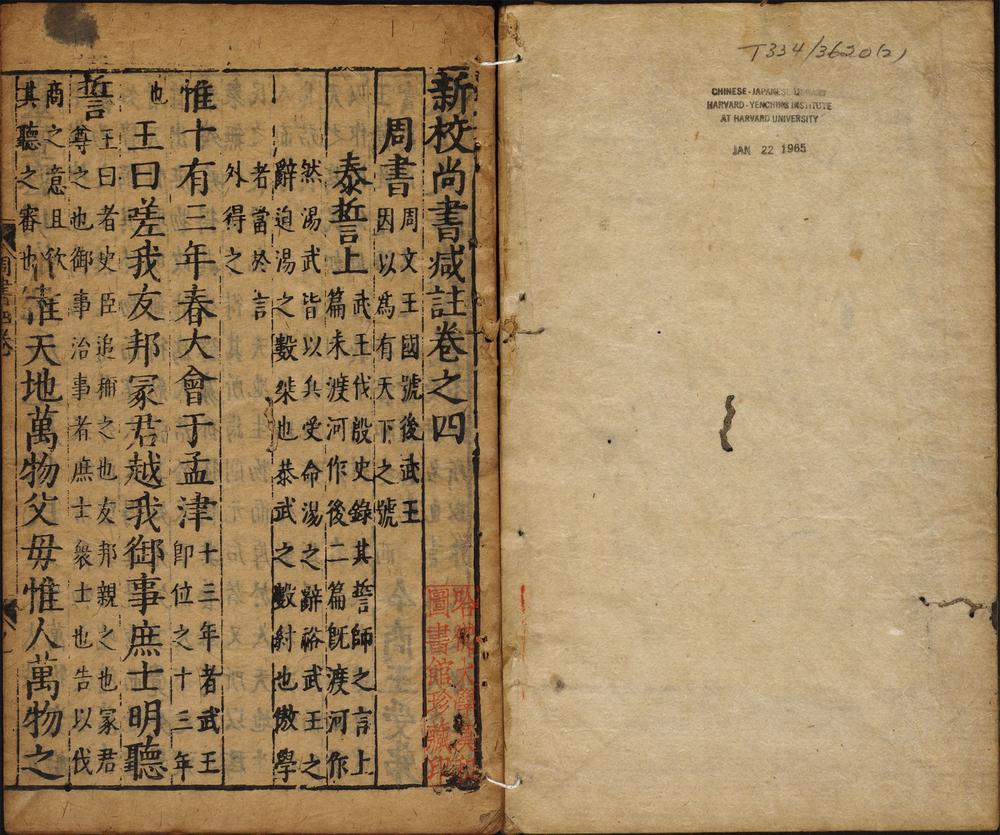 T334/3620(2)
CHINESE-JAPANESE LIBRARY
HARVARD-YENCHING INSTITUTE
AT HARVARD UNIVERSITY
JAN 22 1965
新校尚書蔵註卷之四
周書
周文王國號後武王
因以爲有天下之號
泰誓上
武王伐殷史錄其誓師之言上
篇未渡河作後二篇既渡河作
然湯武皆以兵受命湯之辭裕武王之
辭迫湯之數桀也恭武之數紂也傲學
者當於言
外得之
惟十有三年春大會于孟津
十三年者武王
即位之十三年
也
王曰嗟我友邦冢君越我御事庶士明聽
誓
王曰者史臣追稱之也友邦親之也冢君
尊之也御事治事者庶士衆士也告以伐
商之意且欲
其聽之審也
惟天地萬物父母惟人萬物之
周書四卷
哈佛大學漢和
圖書館珍藏印